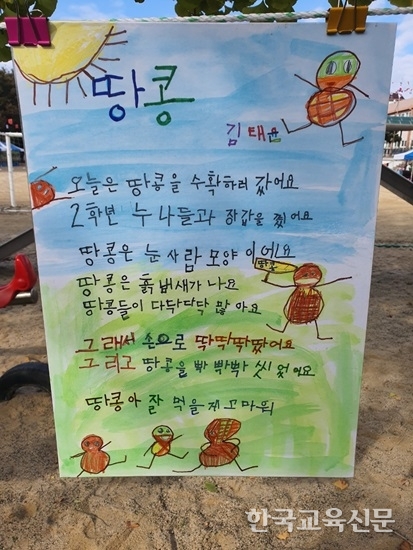 땅콩
김태윤
오늘은 땅콩을 수확하러 갔어요
2학년 누나들과 장갑을 꼈어요
땅콩은 눈사람 모양이에요
땅콩은 흙냄새가 나요
땅콩들이 다닥다닥 많아요
그래서 손으로 딱딱딱땄어요
그리고 땅콩을 빡빡빡 씻었어요
땅콩아 잘 먹을게고마워
한국교육신문